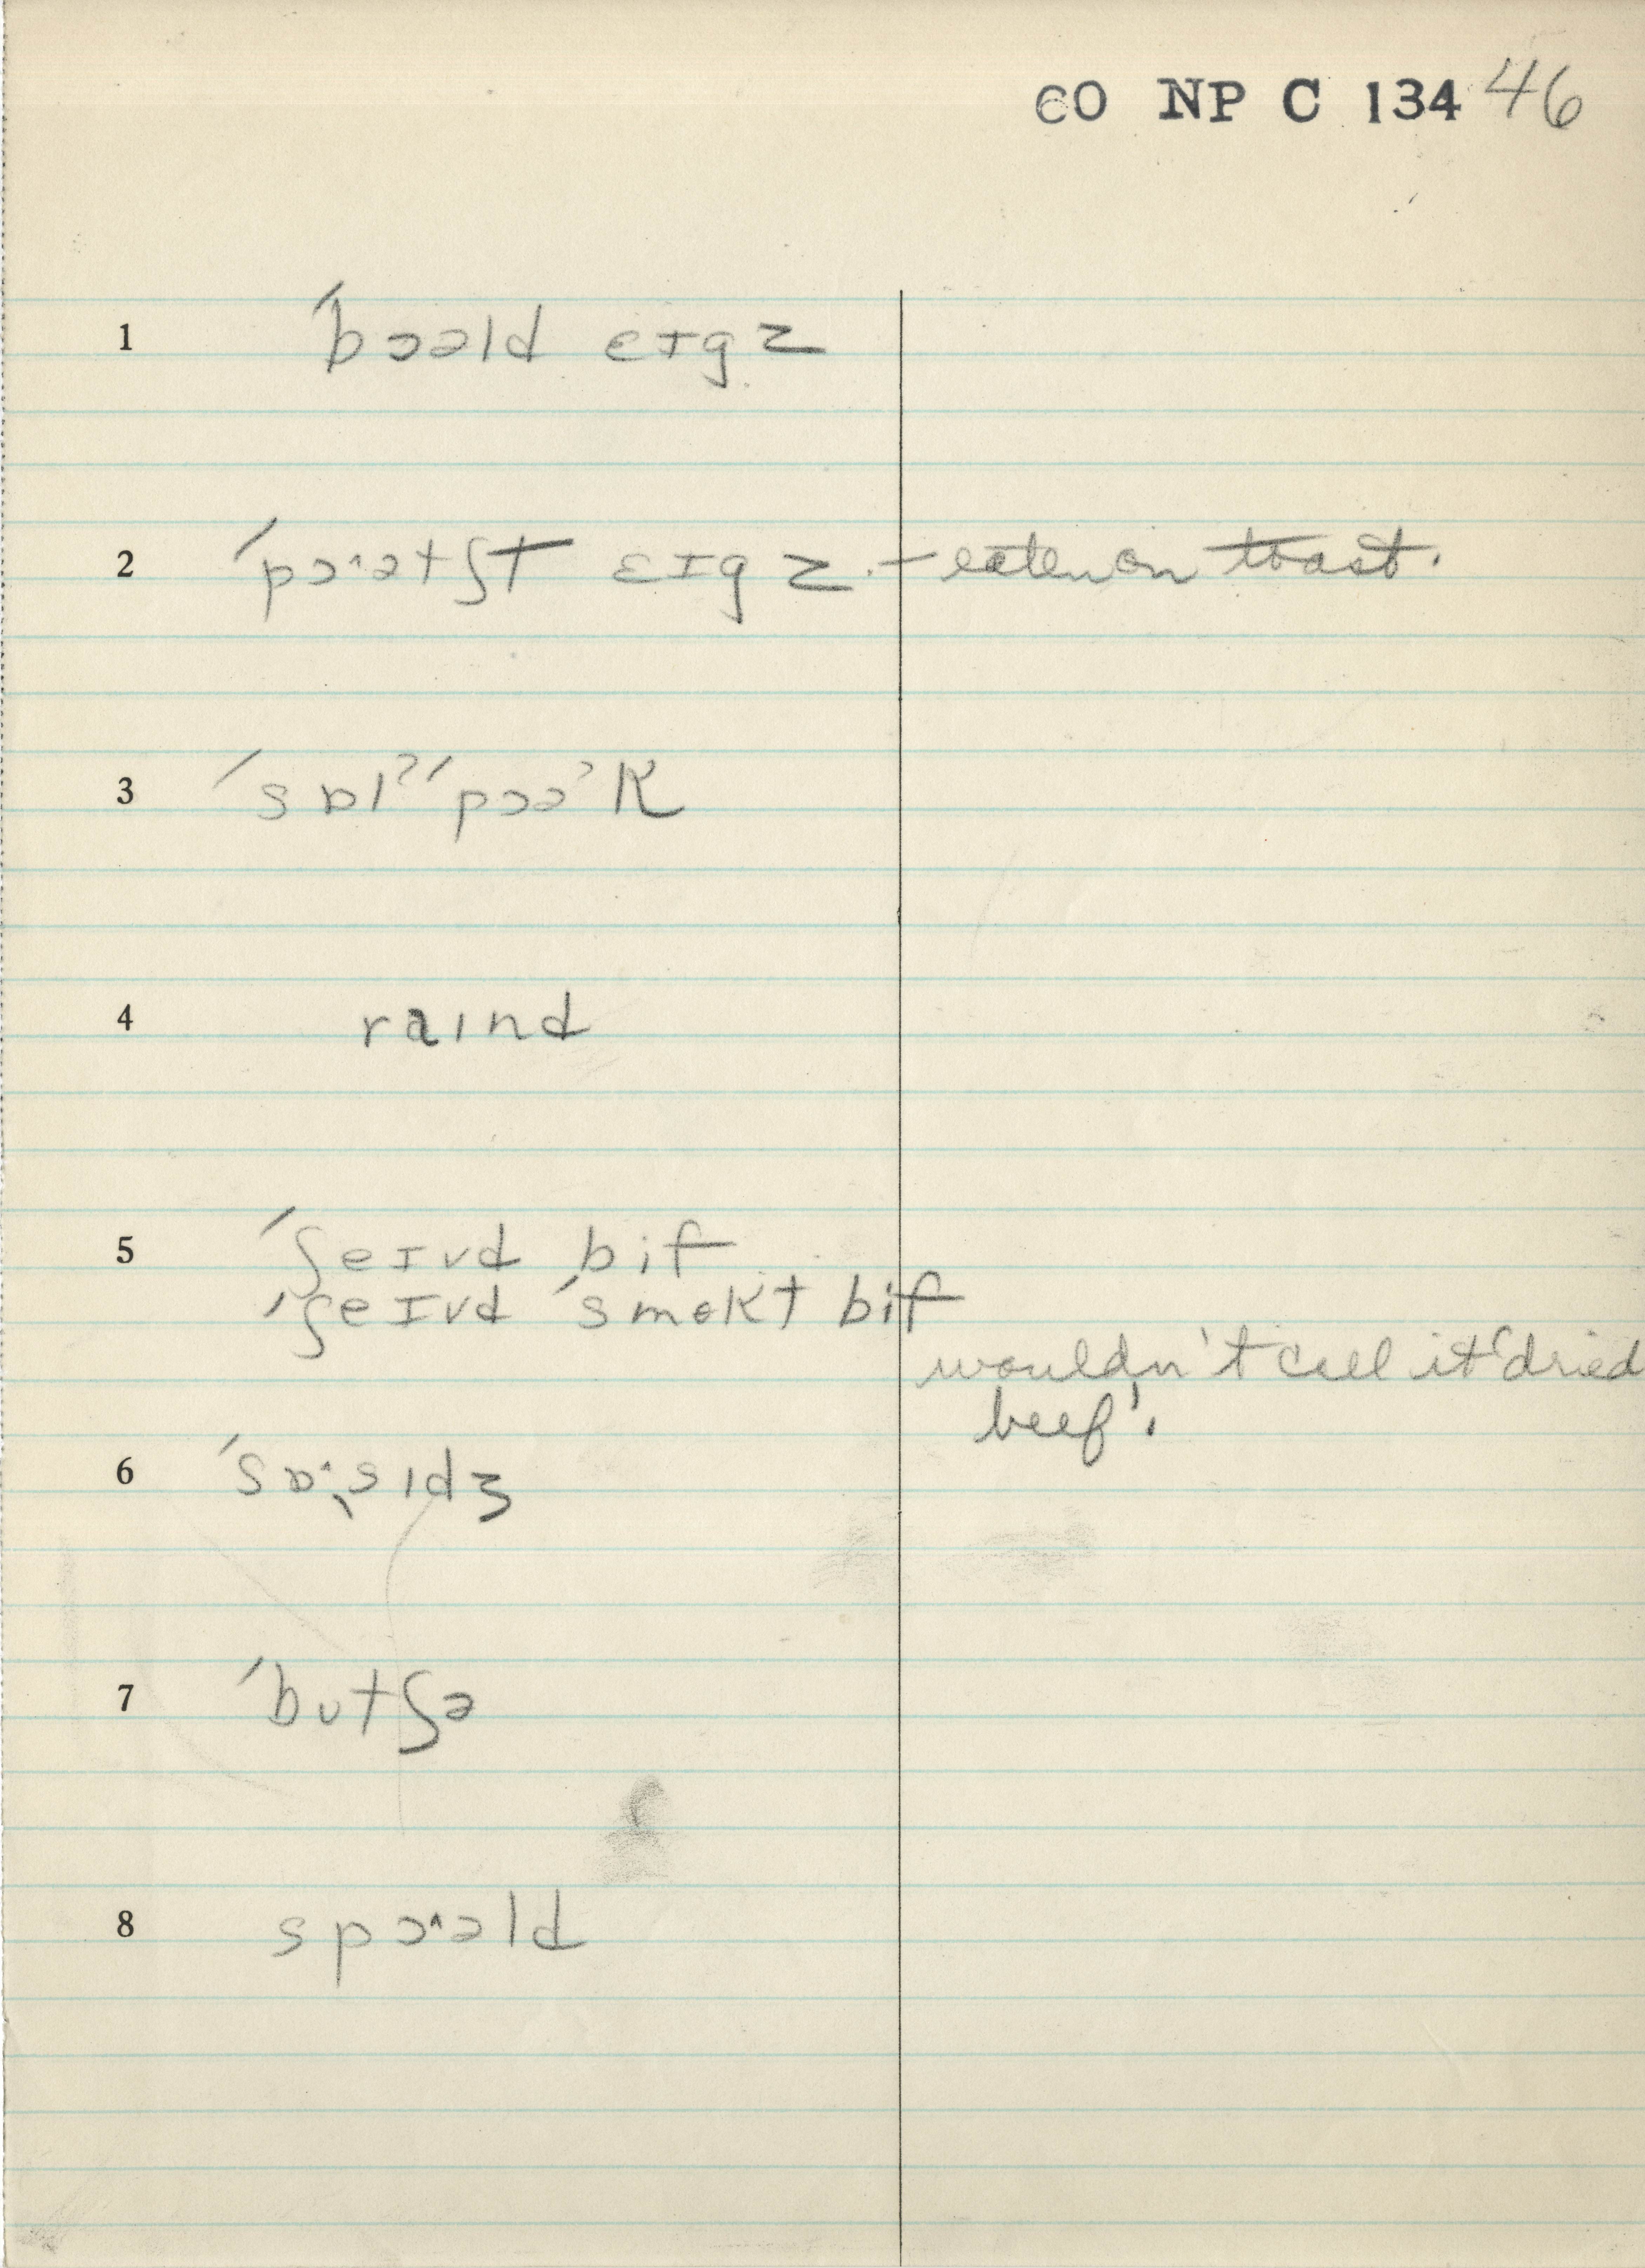 60 NP C 134 46
1 ˊbɔəld ɛɪgz
2 ˊpɔ˄ətʃt ɛɪgz. – eaten on toast.
3 ˊsɒlˀˊpɔəˀk
4 raɪnd
5 ˊʃeɪvd bif
ˊʃeɪvd ˊsmokt bif
wouldn't call it 'dried
beef'.
6 ˊsɒ·sɪdʒ
7 ˊbutʃə
8 spɔ˄əld